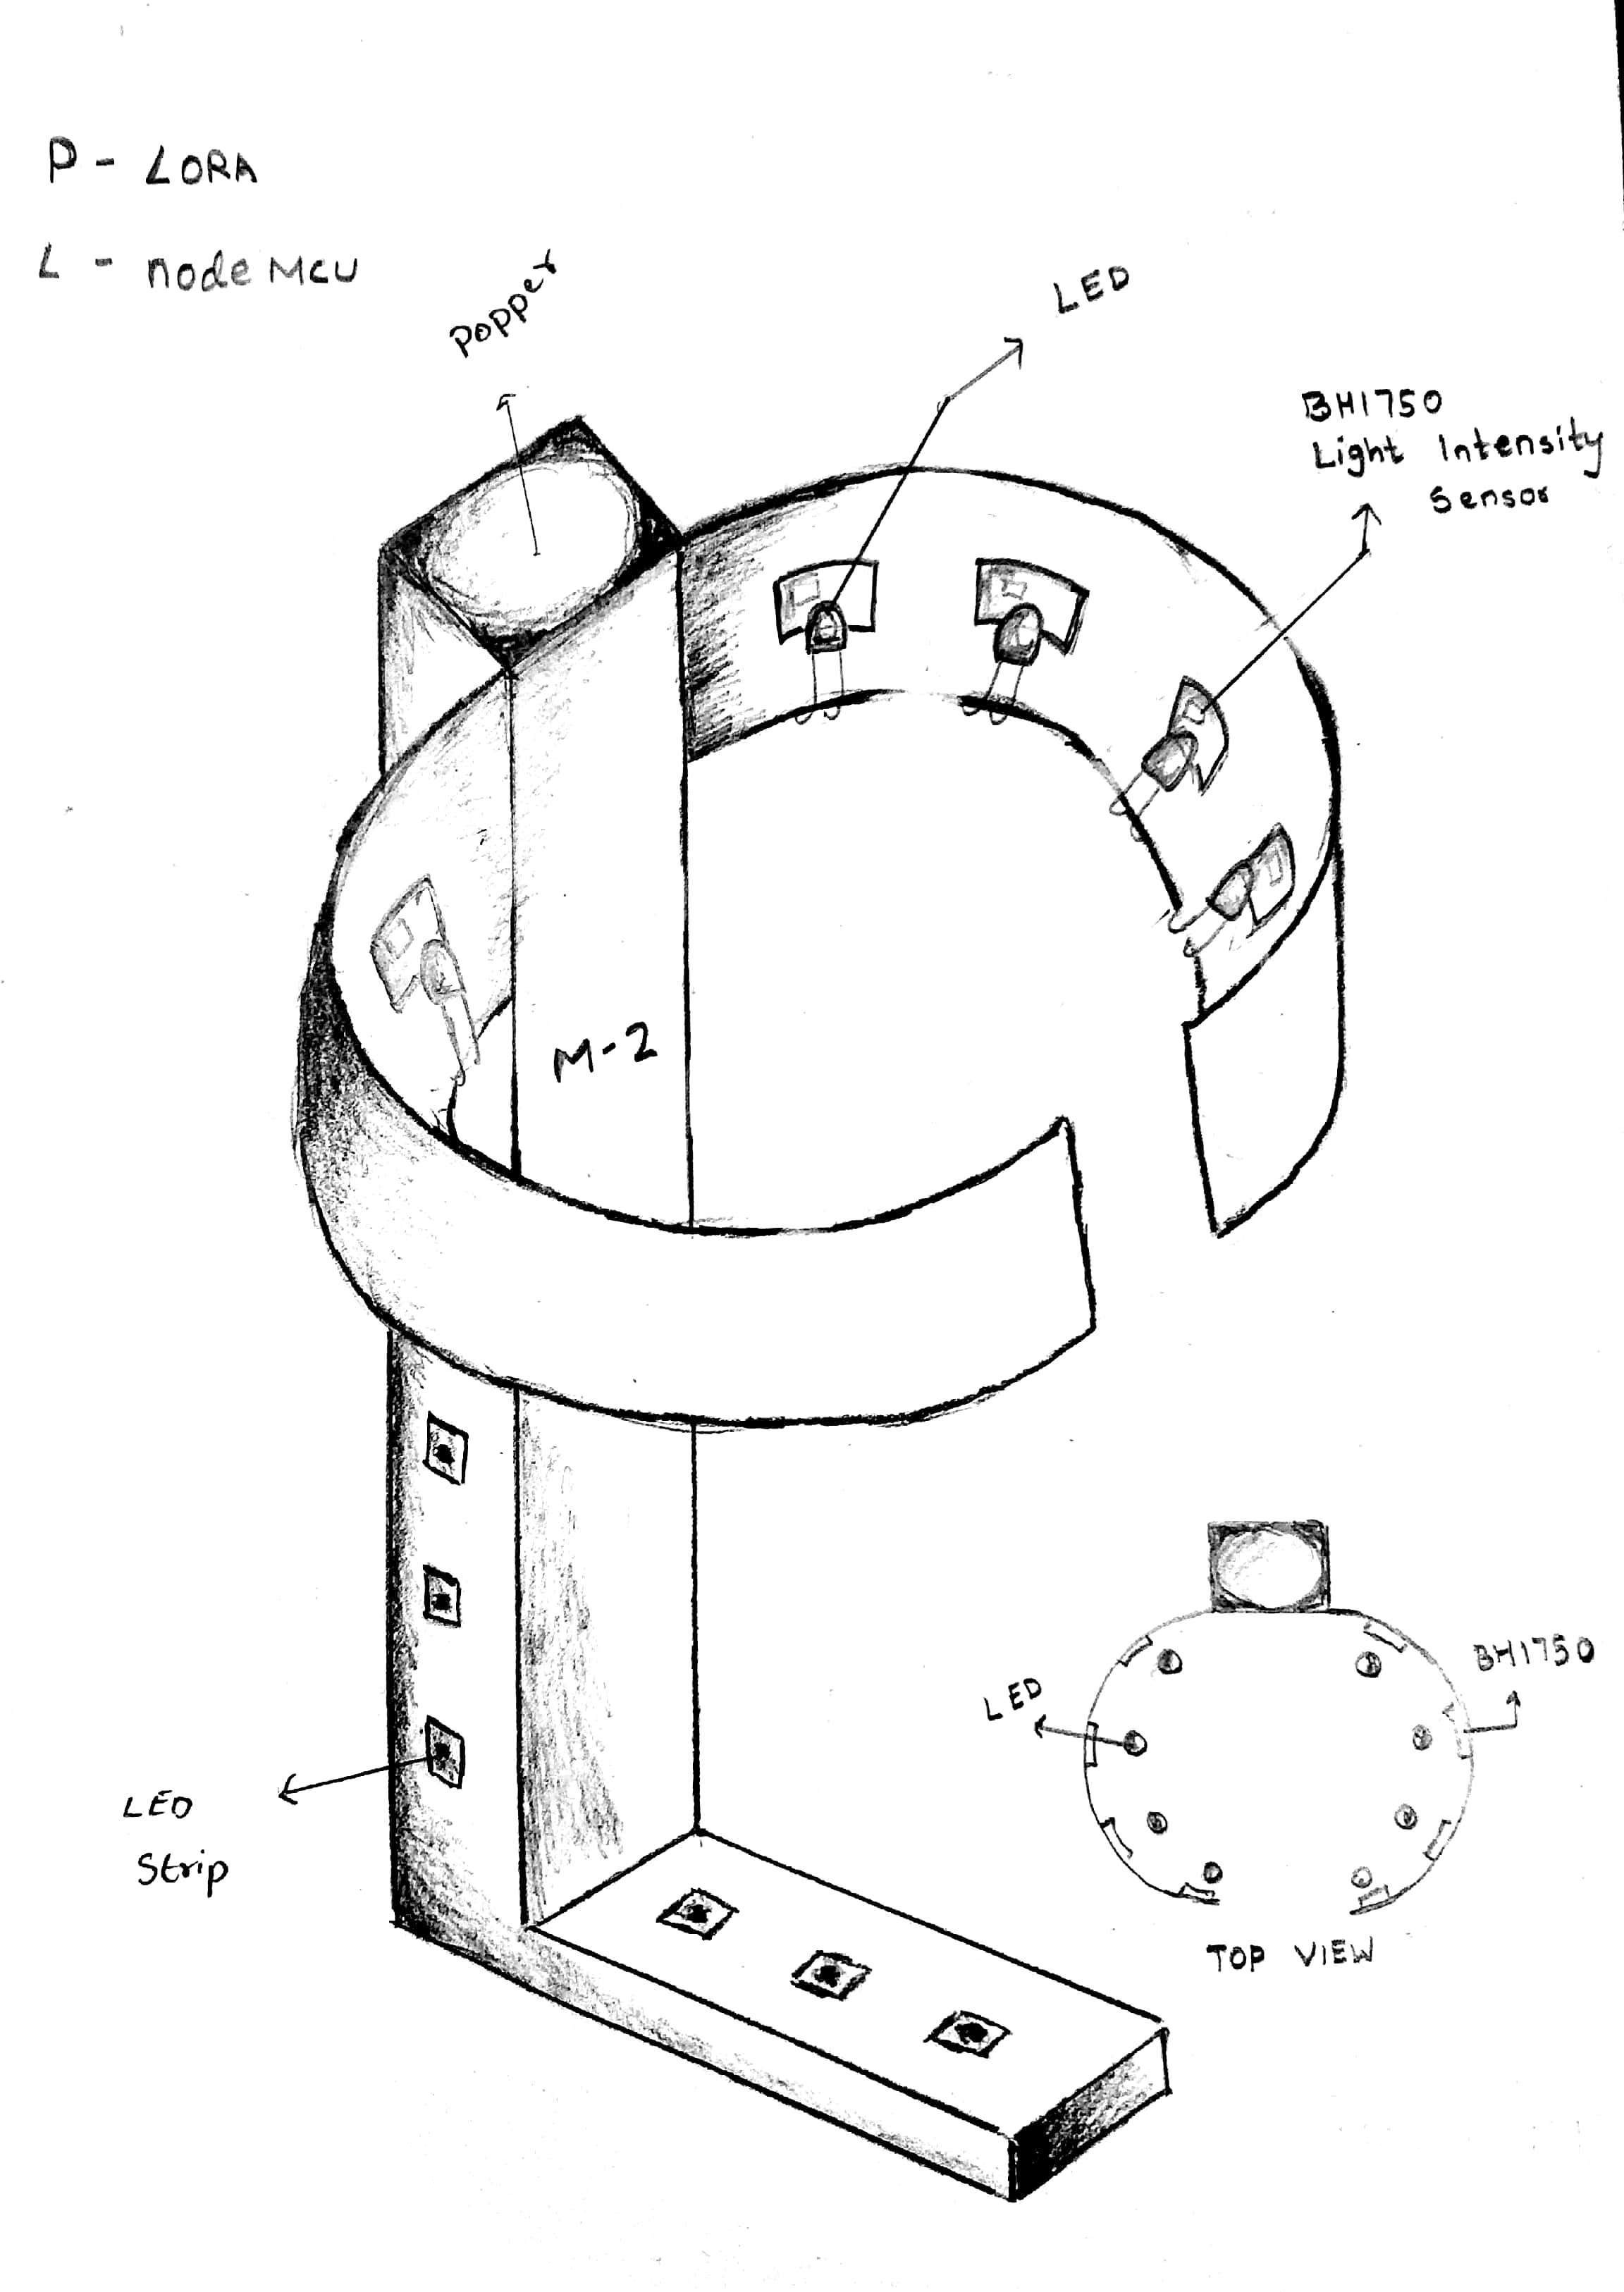 P - LORA
L - node MCU
popper
LED
BH1750
Light Intensity
Sensor
M-2
LED
Strip
LED
BH1750
TOP VIEW